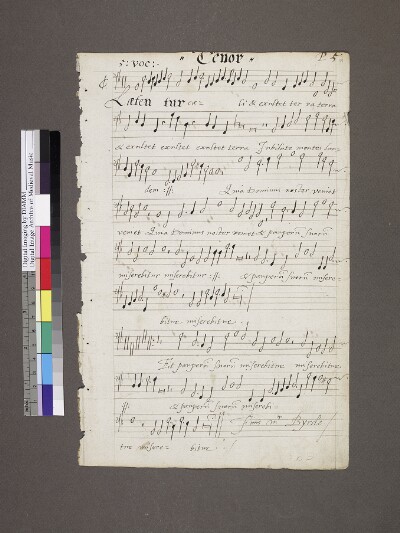 5: voc: Tenor P. 5.
Læten tur cæ- li & exultet ter ra terra
& exultet exultet exultet terra Jubilate montes lau=
dem :||: Quia Dominus noster veniet
veniet Quia Dominus noster veniet & pauperū suorū
miserebitur miserebitur :||: & pauperū suorū misere=
bitur miserebitur
pauperū suorū miserebitur miserebitur
:||: & pauperū suorū miserebi
tur misere= bitur
Byrde
Digital Imaging by DIAMM
Digital Image Archive of Medieval Music